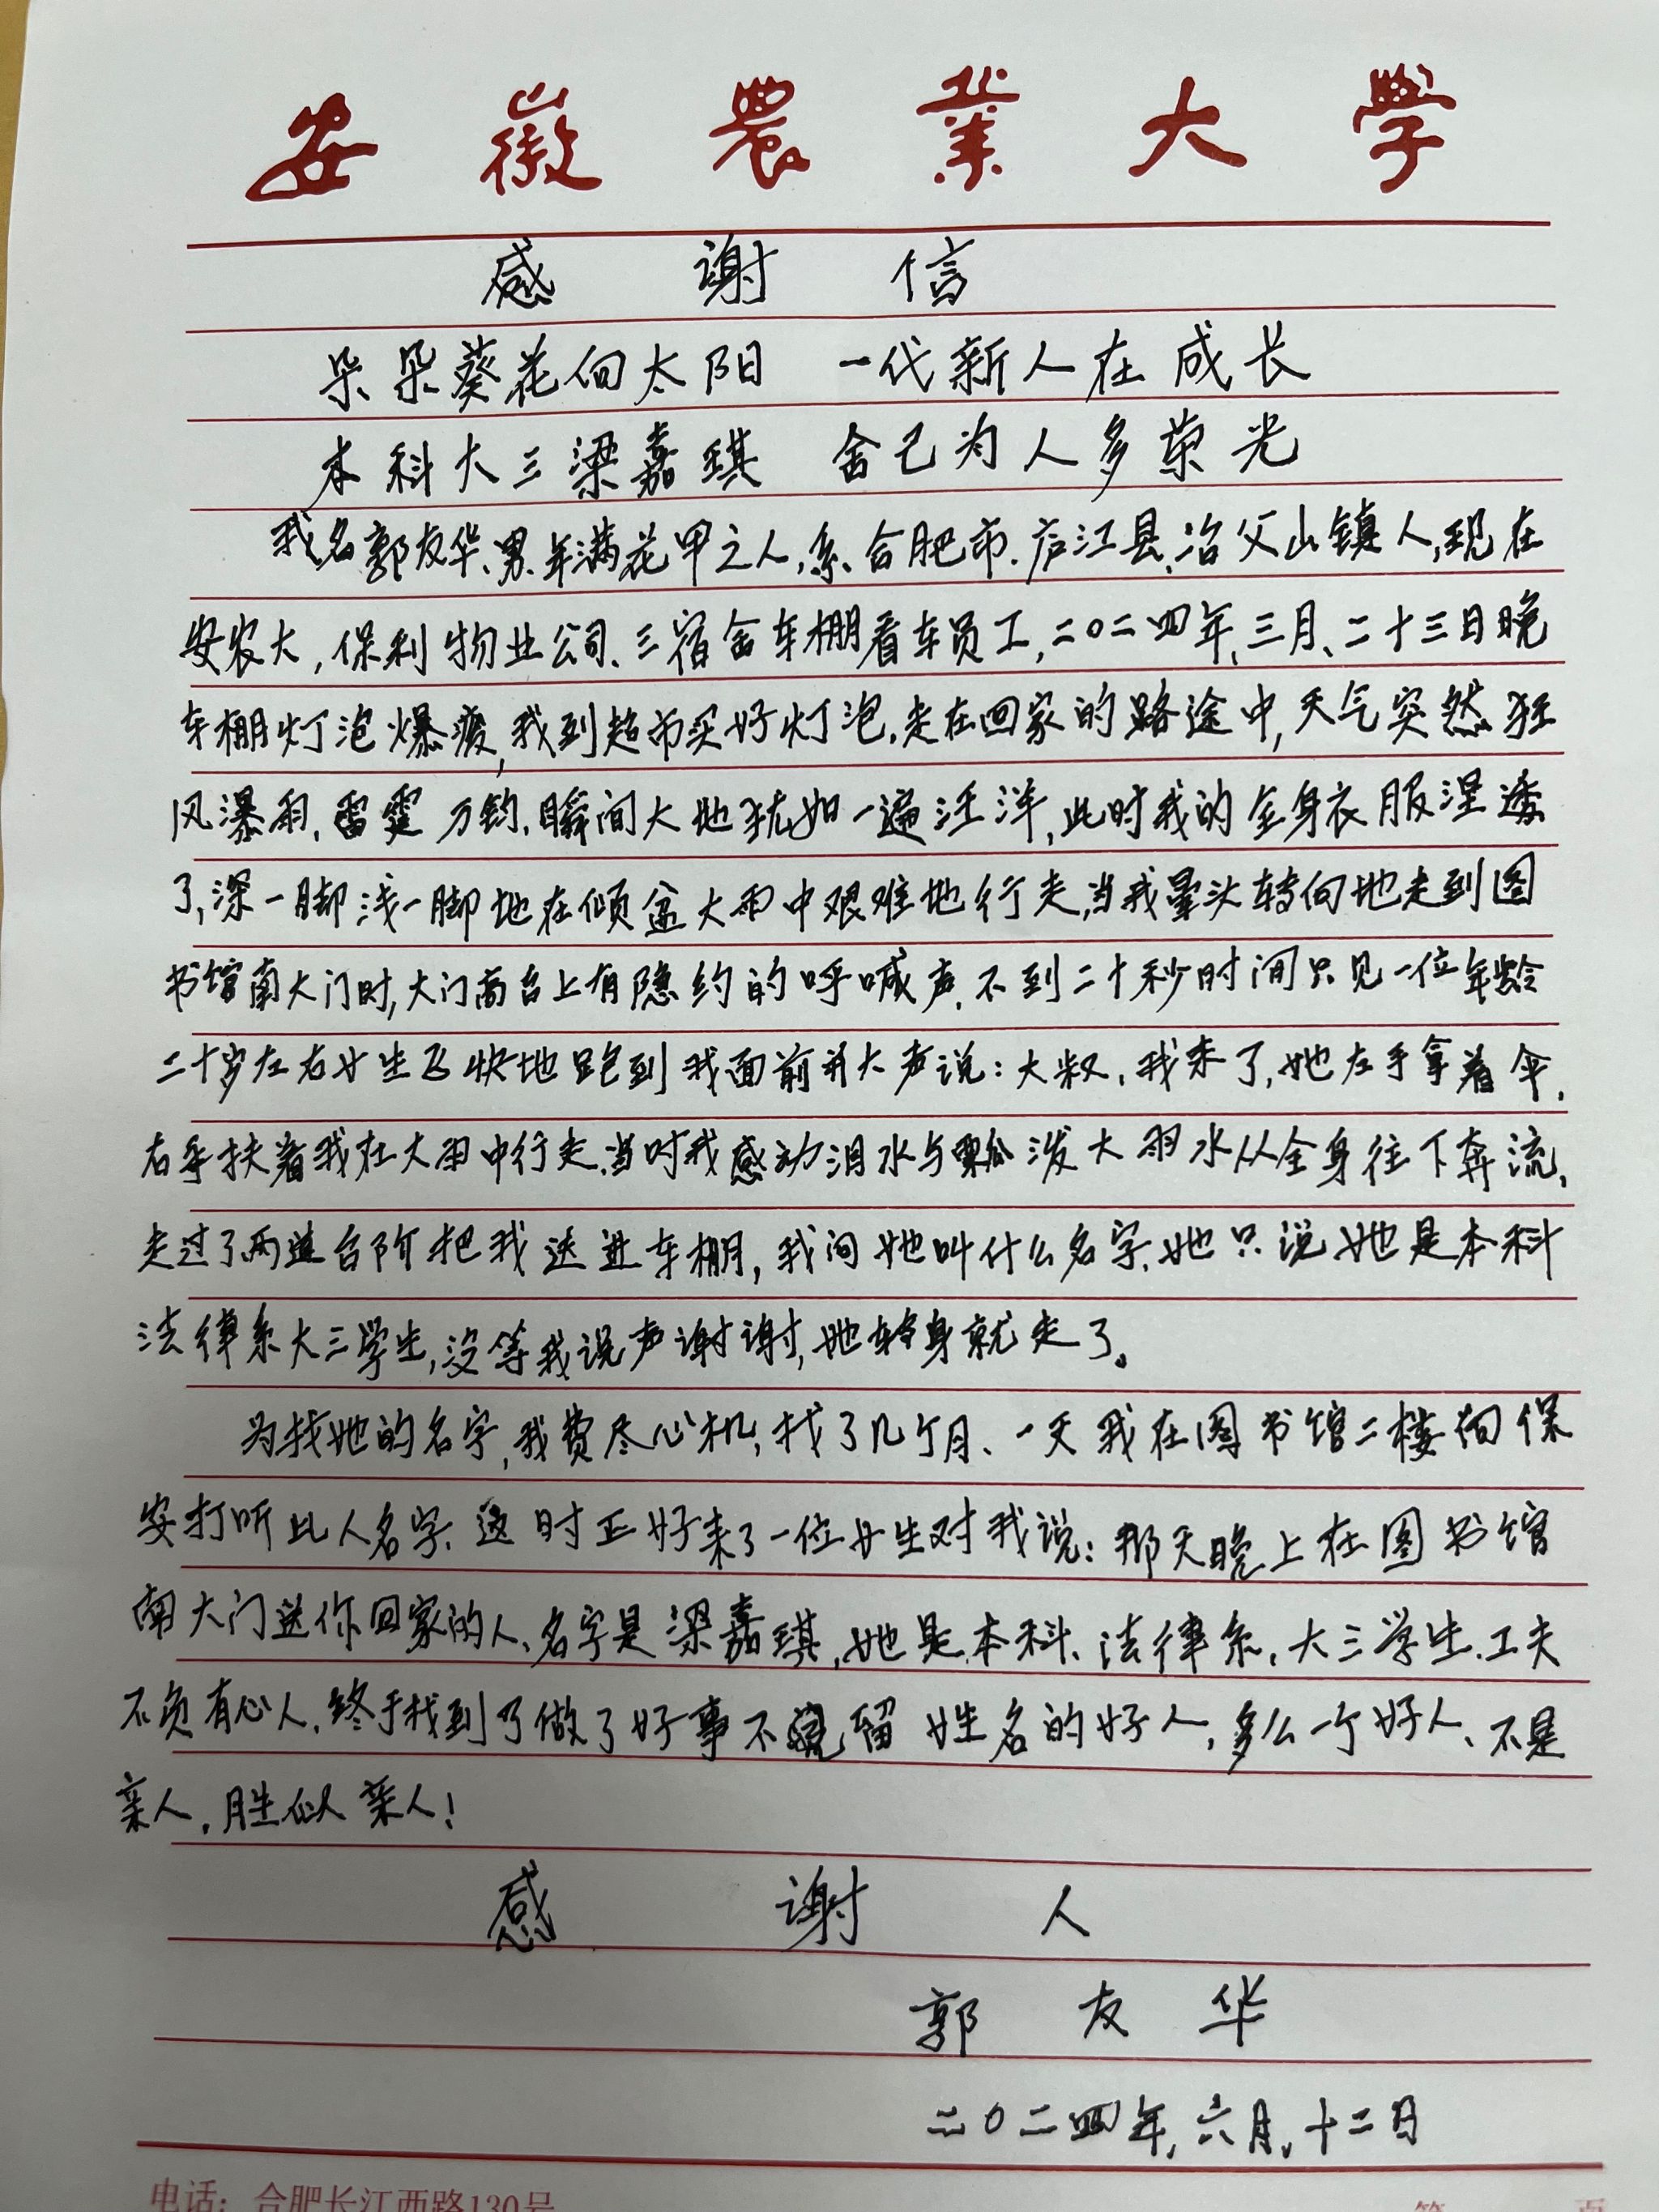 安徽農業大學
感谢信
朵朵葵花向太阳 一代新人在成长
本科大三梁嘉琪 舍己为人多荣光
我名郭友华、男、年满花甲之人,系、合肥市.庐江县、冶父山镇人,现在
安农大,保利物业公司、三宿舍车棚看车员工,二〇二四年、三月、二十三日晚
车棚灯泡爆废,我到超市买好灯泡,走在回家的路途中,天气突然狂
风瀑雨,雷霆万钧,瞬间大地犹如一遍汪洋,此时我的全身衣服湿透
了,深一脚浅一脚地在倾盆大雨中艰难地行走,当我晕头转向地走到图
书馆南大门时,大门高台上有隐约的呼喊声,不到二十秒时间只见一位年龄
二十岁左右女生飞快地跑到我面前并大声说:大叔,我来了,她左手拿着伞,
右手扶着我在大雨中行走,当时我感动泪水与瓢泼大雨水从全身往下奔流,
走过了两道台阶把我送进车棚,我问她叫什么名字,她只说她是本科
法律系大三学生,没等我说声谢谢,她转身就走了。
为找她的名字,我费尽心机,找了几个月、一天我在图书馆二楼向保
安打听此人名字、这时正好来了一位女生对我说:那天晚上在图书馆
南大门送你回家的人、名字是梁嘉琪,她是本科、法律系,大三学生.工夫
不负有心人,终于找到了做了好事不留姓名的好人,多么一个好人、不是
亲人,胜似亲人!
感谢人
郭友华
二〇二四年,六月,十二日
电话:合肥长江西路130号